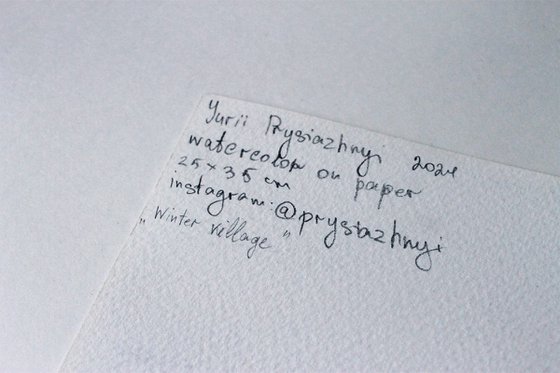 Yurii Prysiazhnyi 2024
watercolor on paper
25 × 35 cm
instagram: @prysiazhnyi
„Winter village"